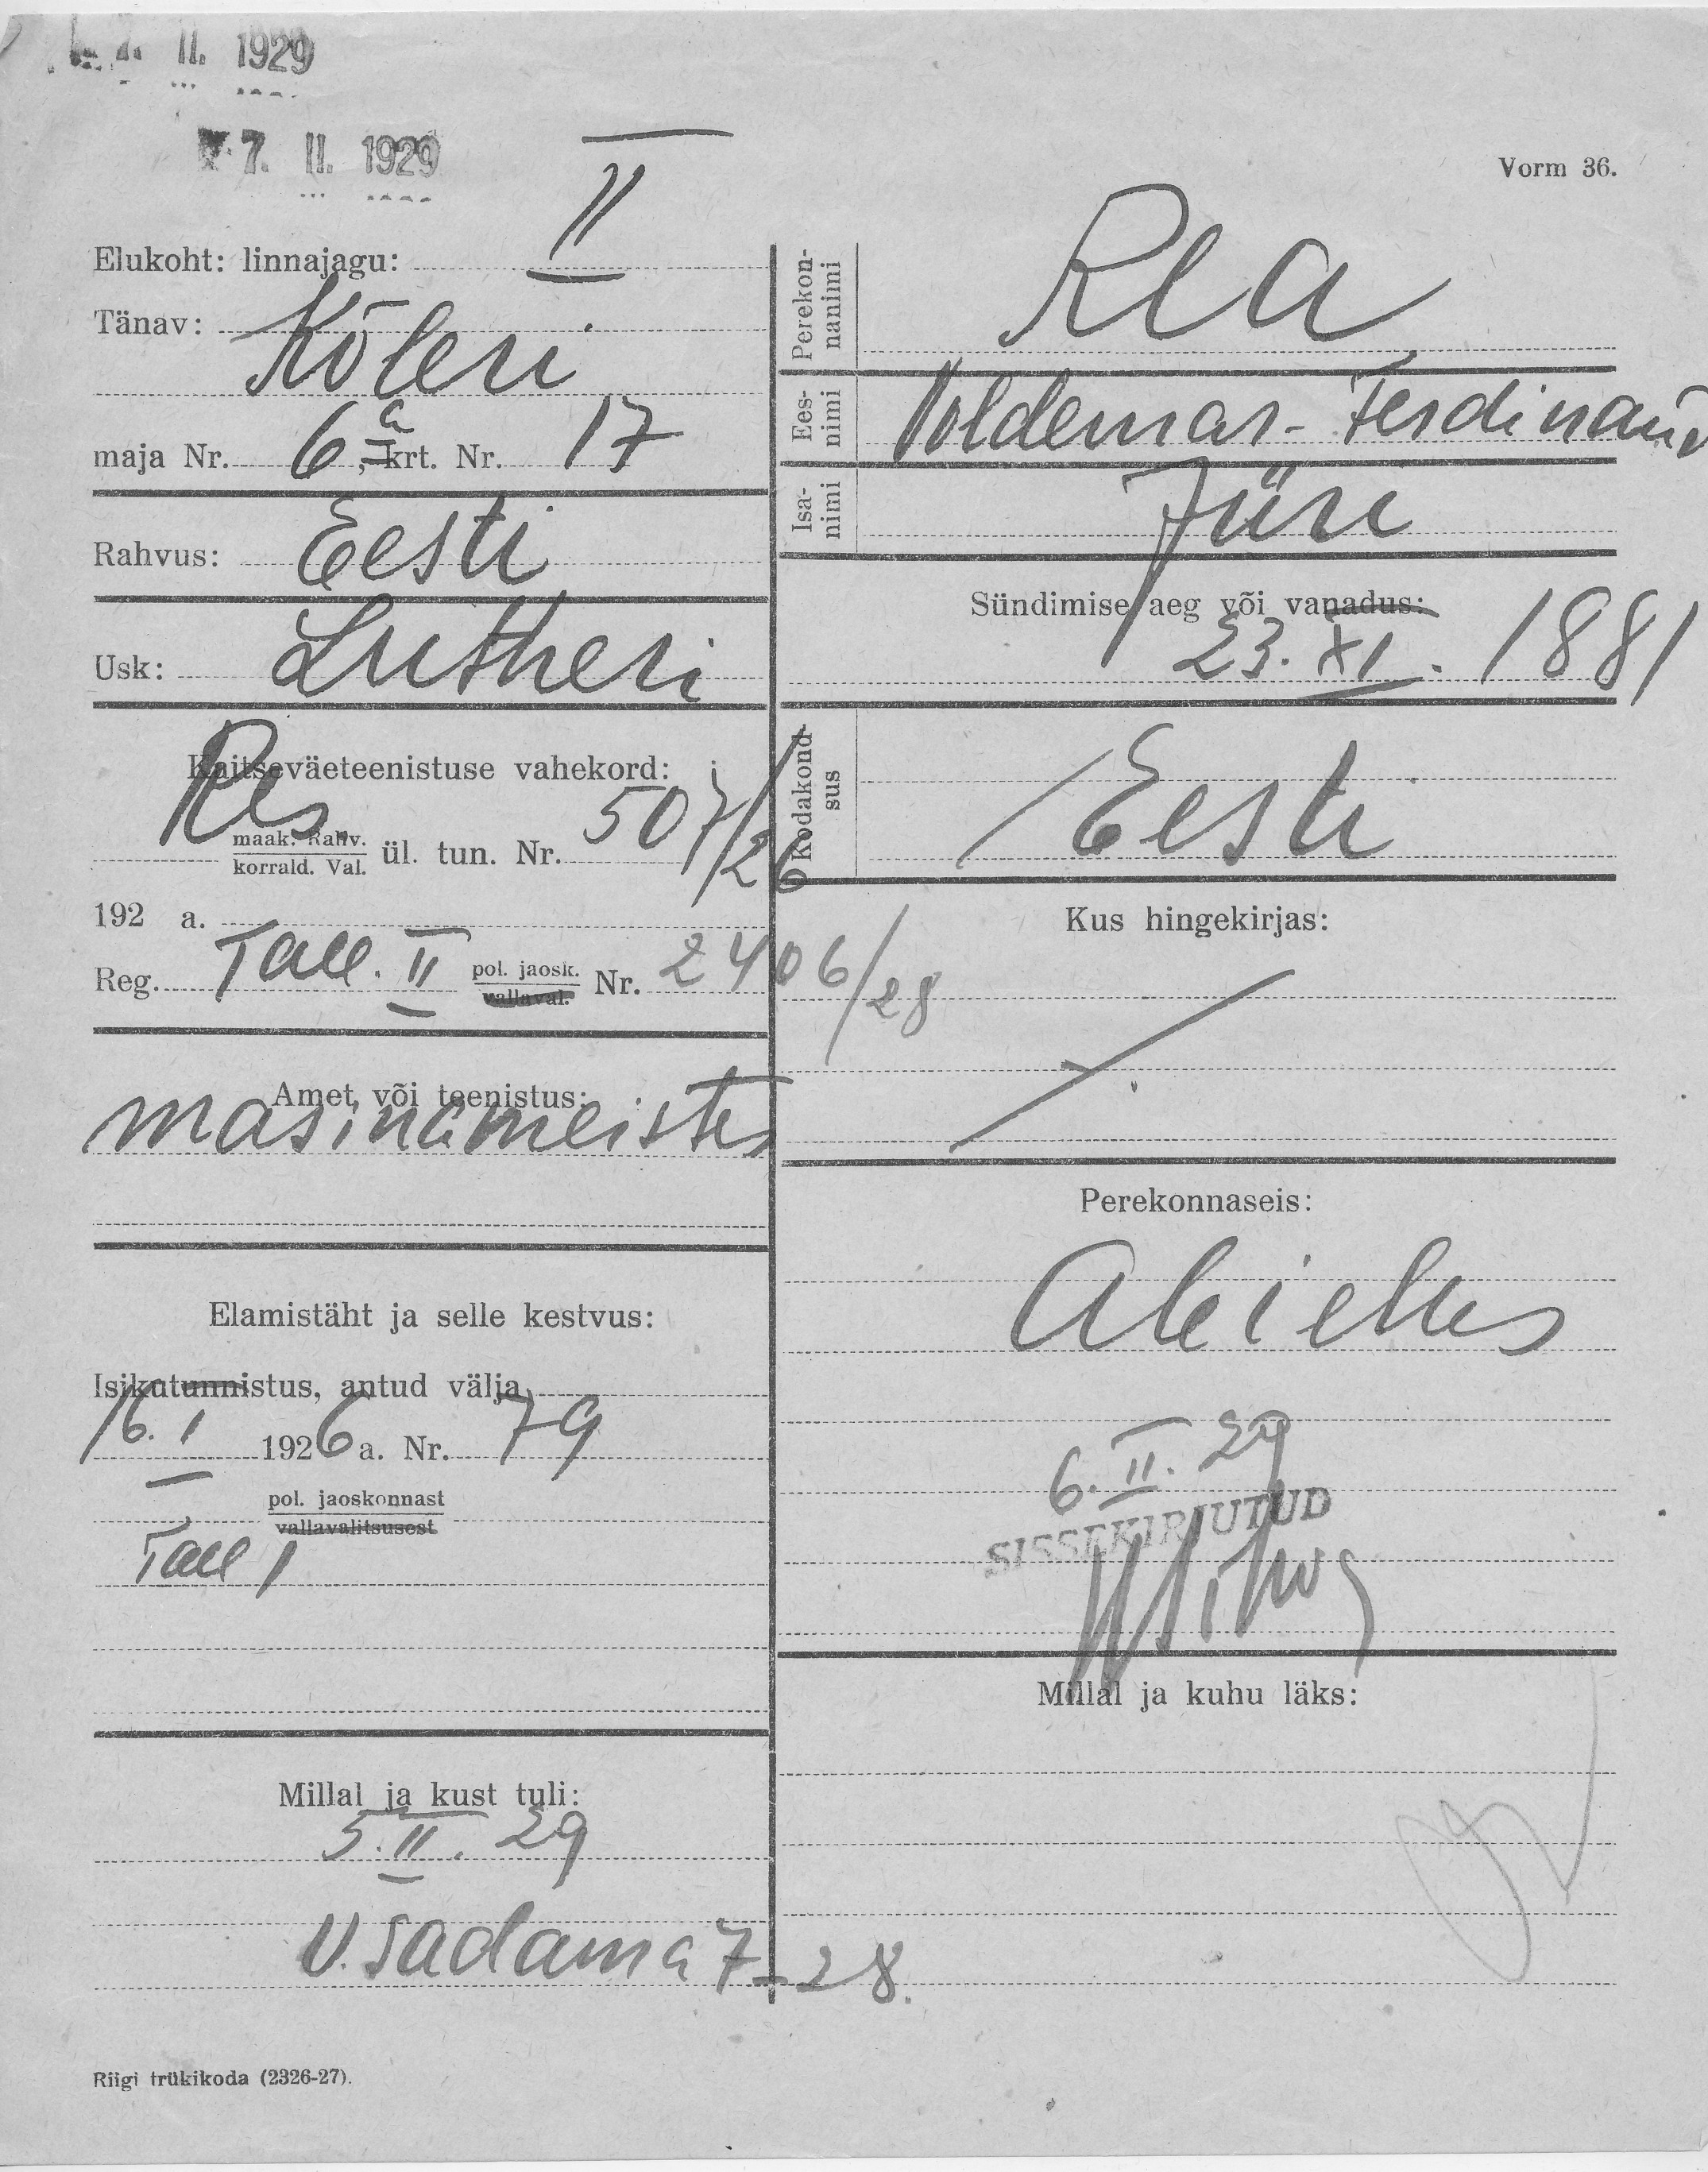 7. II. 1929
7. II. 1929
Vorm 36.
Elukoht: linnajagu: II
Tänav: Köleri
maja Nr. 6a, krt. Nr. 17
Rahvus: Eesti
Usk: Lutheri
Kaitseväeteenistuse vahekord:
Res.
maak. Rahv.
korrald. Val. ül. tun. Nr. 507/26
192 a.
Reg. Tall. II pol. jaosk. Nr. 2406/28
vallaval.
Amet või teenistus:
masinameister
Elamistäht ja selle kestvus:
Isikutunnistus, antud välja
16. I 1926 a. Nr. 79
pol. jaoskonnast
vallavalitsusest
Tall I
Millal ja kust tuli:
5. II. 29
V. Sadama 7-28.
Riigi trükikoda (2326-27).
Perekonnanimi Rea
Eesnimi Voldemar-Ferdinand
Isanimi Jüri
Sündimise aeg või vanadus:
23. XI. 1881
Kodakondsus Eesti
Kus hingekirjas:
Perekonnaseis:
Abielus
6. II. 29
SISSEKIRJUTUD
Millal ja kuhu läks: